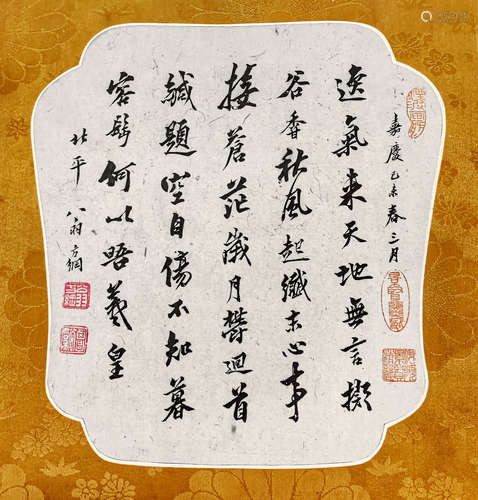 嘉慶己未春三月
逸氣来天地無言擬
谷香秋風起纖末心事
接蒼茫歲月欝迴首
緘題空自傷不知暮
容髩何以晤羲皇
北平
翁方綱